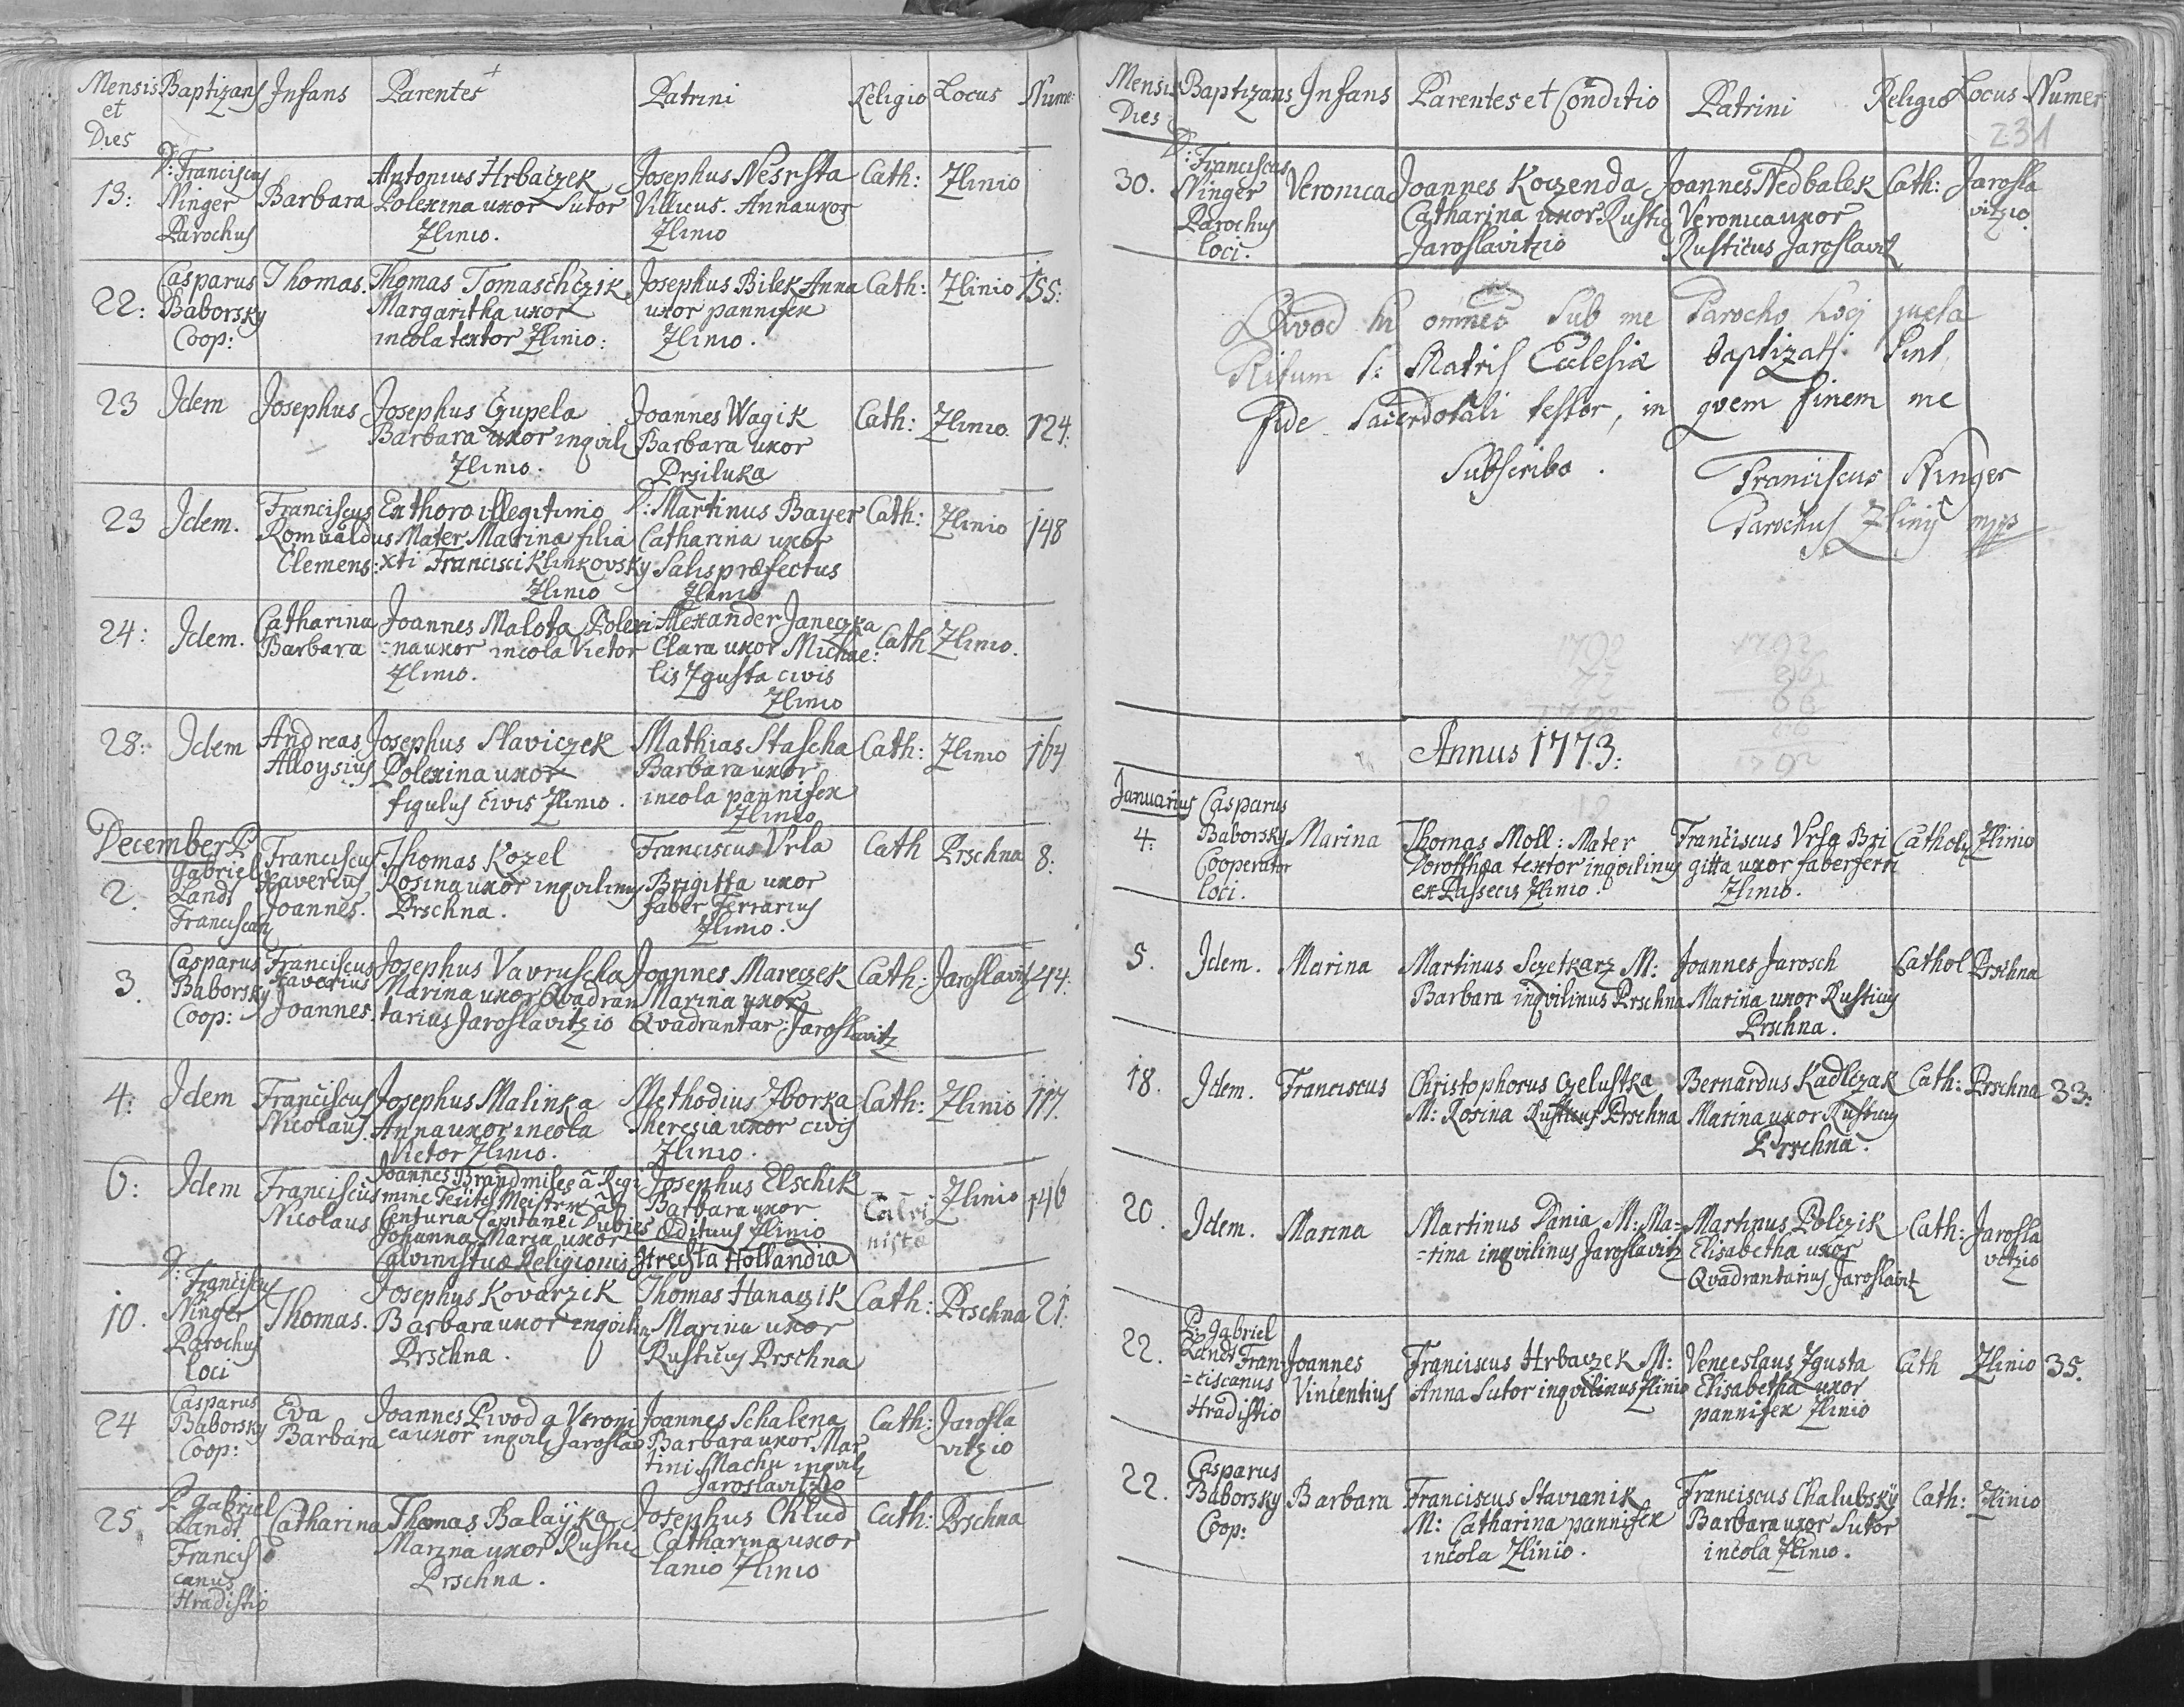 Mensis et Dies Baptizans Infans Parentes Patrini Religio Locus Nume:
13: D: Franciscus Ninger Parochus
Barbara
Antonius Hrbaczek
Polexina uxor Sutor
Zlinio.
Josephus Nesrsta
Villicus. Anna uxor
Zlinio
Cath: Zlinio
22: Casparus Baborsky Coop:
Thomas.
Thomas Tomaschczik
Margaritha uxor
incola textor Zlinio:
Josephus Bilek Anna
uxor pannifex
Zlinio.
Cath: Zlinio 155:
23 Idem Josephus
Josephus Czupela
Barbara uxor inqvil
Zlinio.
Joannes Wagik
Barbara uxor
Prziluka
Cath: Zlinio. 124:
23 Idem.
Franciscus
Romualdus
Clemens:
Ex thoro illegitimo
Mater Marina filia
xti Francisci Klinkovsky
Zlinio
D: Martinus Bayer
Catharina uxor
Salis præfectus
Zlinio
Cath: Zlinio 148
24: Idem.
Catharina
Barbara
Joannes Malota Polexi
=na uxor incola Vietor
Zlinio.
Alexander Janeczka
Clara uxor Michae:
lis Zgusta civis
Zlinio
Cath Zlinio.
28: Idem
Andreas
Alloysius
Josephus Slaviczek
Polexina uxor
figulus civis Zlinio.
Mathias Stascha
Barbara uxor
incola pannifex
Zlinio
Cath: Zlinio 164
December
2. P Gabriel Landt Franciscan
Franciscus
Xaverius
Joannes.
Thomas Kozel
Rosina uxor inqvilinus
Prschna.
Franciscus Vrla
Brigitta uxor
faber ferrarius
Zlinio.
Cath Prschna 8:
3. Casparus Baborsky Coop:
Franciscus
Xaverius
Joannes.
Josephus Vavruscha
Marina uxor Qvadran
tarius Jaroslavitzio
Joannes Mareczek
Marina uxor
Qvadrantar: Jaroslavitz
Cath: Jaroslavitz 44:
4: Idem
Franciscus
Nicolaus
Josephus Malinka
Anna uxor incola
Vietor Zlinio.
Methodius Zborka
Theresia uxor civis
Zlinio.
Cath: Zlinio 117.
6: Idem
Franciscus
Nicolaus
Joannes Brand miles à Regi
mine Meistern
Centuria Capitanei
Johanna Maria uxor
Calvinisticæ Religionis Utrechta Hollandia
Josephus Elschik
Barbara uxor
Ædituus Zlinio
Calvi
nista
Zlinio 146
10. D: Franciscus Ninger Parochus loci
Thomas.
Josephus Kovarzik
Barbara uxor inqvilin
Prschna.
Thomas Hanaczik
Marina uxor
Rusticus Prschna
Cath: Prschna 21:
24 Casparus Baborsky Coop:
Eva
Barbara
Joannes Pivoda Veroni
ca uxor inqvil Jaroslav
Joannes Schalena
Barbara uxor Mar
tini Machu inqvil
Jaroslavitzio
Cath: Jarosla
vitzio
25 P Gabriel Landt Francis canus Hradistio
Catharina
Thomas Balayka
Marina uxor Rustic
Prschna.
Josephus Chlud
Catharina uxor
lanio Zlinio
Cath: Prschna
Mensis Dies Baptizans Infans Parentes et Conditio Patrini Religio Locus Numer
231
30. D: Franciscus Ninger Parochus loci.
Veronica
Joannes Koczenda
Catharina uxor Rustic
Jaroslavitzio
Joannes Nedbalek
Veronica uxor
Rusticus Jaroslavit
Cath: Jarosla
vitzio.
Qvod hi omnes sub me Parocho Loci juxta
Ritum S: Matris Ecclesiæ baptizati sint,
fide Sacerdotali testor, in qvem finem me
Subscribo.
Franciscus Ninger
Parochus Zlinij mpp
Annus 1773:
Januarius
4: Casparus Baborsky Cooperator loci.
Marina
Thomas Moll: Mater
Dorothea textor inqvilinus
ex Passecis Zlinio.
Franciscus Vrla Bri
gitta uxor faber ferri
Zlinio.
Cathol Zlinio
5. Idem. Marina
Martinus Sczetkarz M:
Barbara inqvilinus Prschna
Joannes Jarosch
Marina uxor Rusticus
Prschna.
Cathol Prschna
18. Idem. Franciscus
Christophorus Czelustka
M: Rosina Rusticus Prschna
Bernardus Kadlczak
Marina uxor Rusticus
Prschna.
Cath: Prschna 33:
20. Idem. Marina
Martinus Dania M: Ma=
=rina inqvilinus Jaroslavitz
Martinus Polczik
Elisabetha uxor
Qvadrantarius Jaroslavit
Cath: Jarosla
vitzio
22. P: Gabriel Landt Fran=
=ciscanus Hradistio
Joannes
Vincentius
Franciscus Hrbaczek M:
Anna Sutor inqvilinus Zlinio
Venceslaus Zgusta
Elisabetha uxor
pannifex Zlinio
Cath Zlinio 35.
22. Casparus Baborsky Coop:
Barbara
Franciscus Stavianik
M: Catharina pannifex
incola Zlinio.
Franciscus Chalubskÿ
Barbara uxor Sutor
incola Zlinio.
Cath: Zlinio